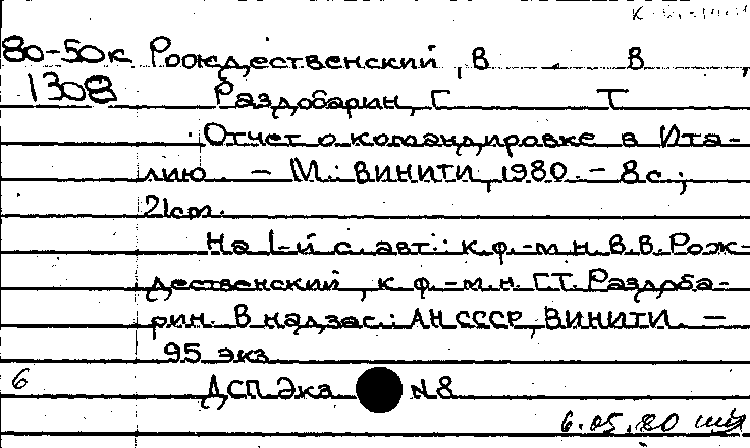 80-50к Рождественский, В В,
1308 Раздобарин, Г Т
Отчет о командировке в Ита-
лию. - М.: ВИНИТИ, 1980. - 8 с.;
21 cm.
На 1-й с. авт.: к.ф.-м.н. В.В. Рож-
дественский, к.ф.-м.н. Г.Т. Раздоба-
рин. В надзаг.: АН СССР, ВИНИТИ. -
95 экз
6 ДСП. Экз N8
6.05.80